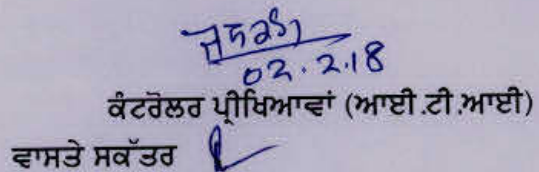 02.2.18
ਕੰਟਰੋਲਰ ਪ੍ਰੀਖਿਆਵਾਂ (ਆਈ.ਟੀ.ਆਈ)
ਵਾਸਤੇ ਸਕੱਤਰ